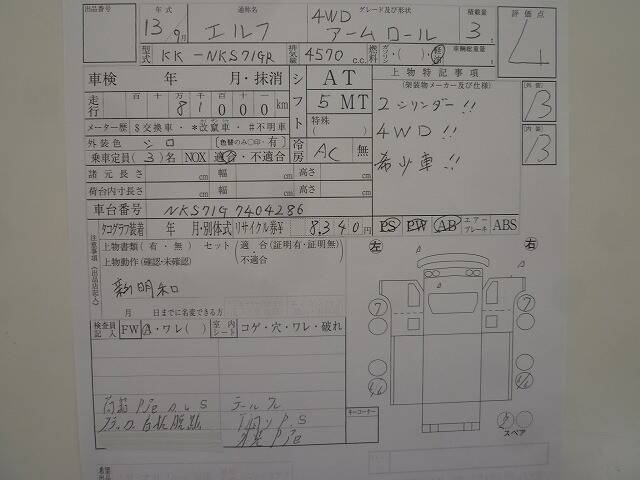 出品番号 年式 通称名 グレード及び形状 積載量 評価点
13/9月 エルフ 4WD アームロール 3 4
型式 KK-NKS71GR 排気量 4570 c.c. 燃料 ガソリン・( )・軽油 車輌総重量
車検 年 月・抹消 シフト AT 上物特記事項
(架装物メーカー及び仕様) 外価 B
走行 百 十 万 千 百 十 km 5 MT
81000
2シリンダー!!
メーター歴 $交換車・*改竄車・#不明車 特殊 ( )
4WD!! 内価 B
外装色 シロ (色替のみ○印・有) 冷房 AC 無
希少車!!
乗車定員 (3)名 NOX 適合・不適合
諸元長さ cm 幅 cm 高さ cm
荷台内寸長さ cm 幅 cm 高さ cm
車台番号 NKS71G 7404286
タコグラフ装着 年 月・別体式 リサイクル券¥ 8,340円 PS PW AB エアーブレーキ ABS
注意事項(出品店記入) 上物書類(有・無) セット(適合(証明有・証明無) 不適合)
上物動作(確認・未確認)
左 右
新明和
月 日までに名変できる方
検査員記入 FW A・ワレ( ) 室内シート コゲ・穴・ワレ・破れ
7 7
テールフル
キーコーナー
スペア